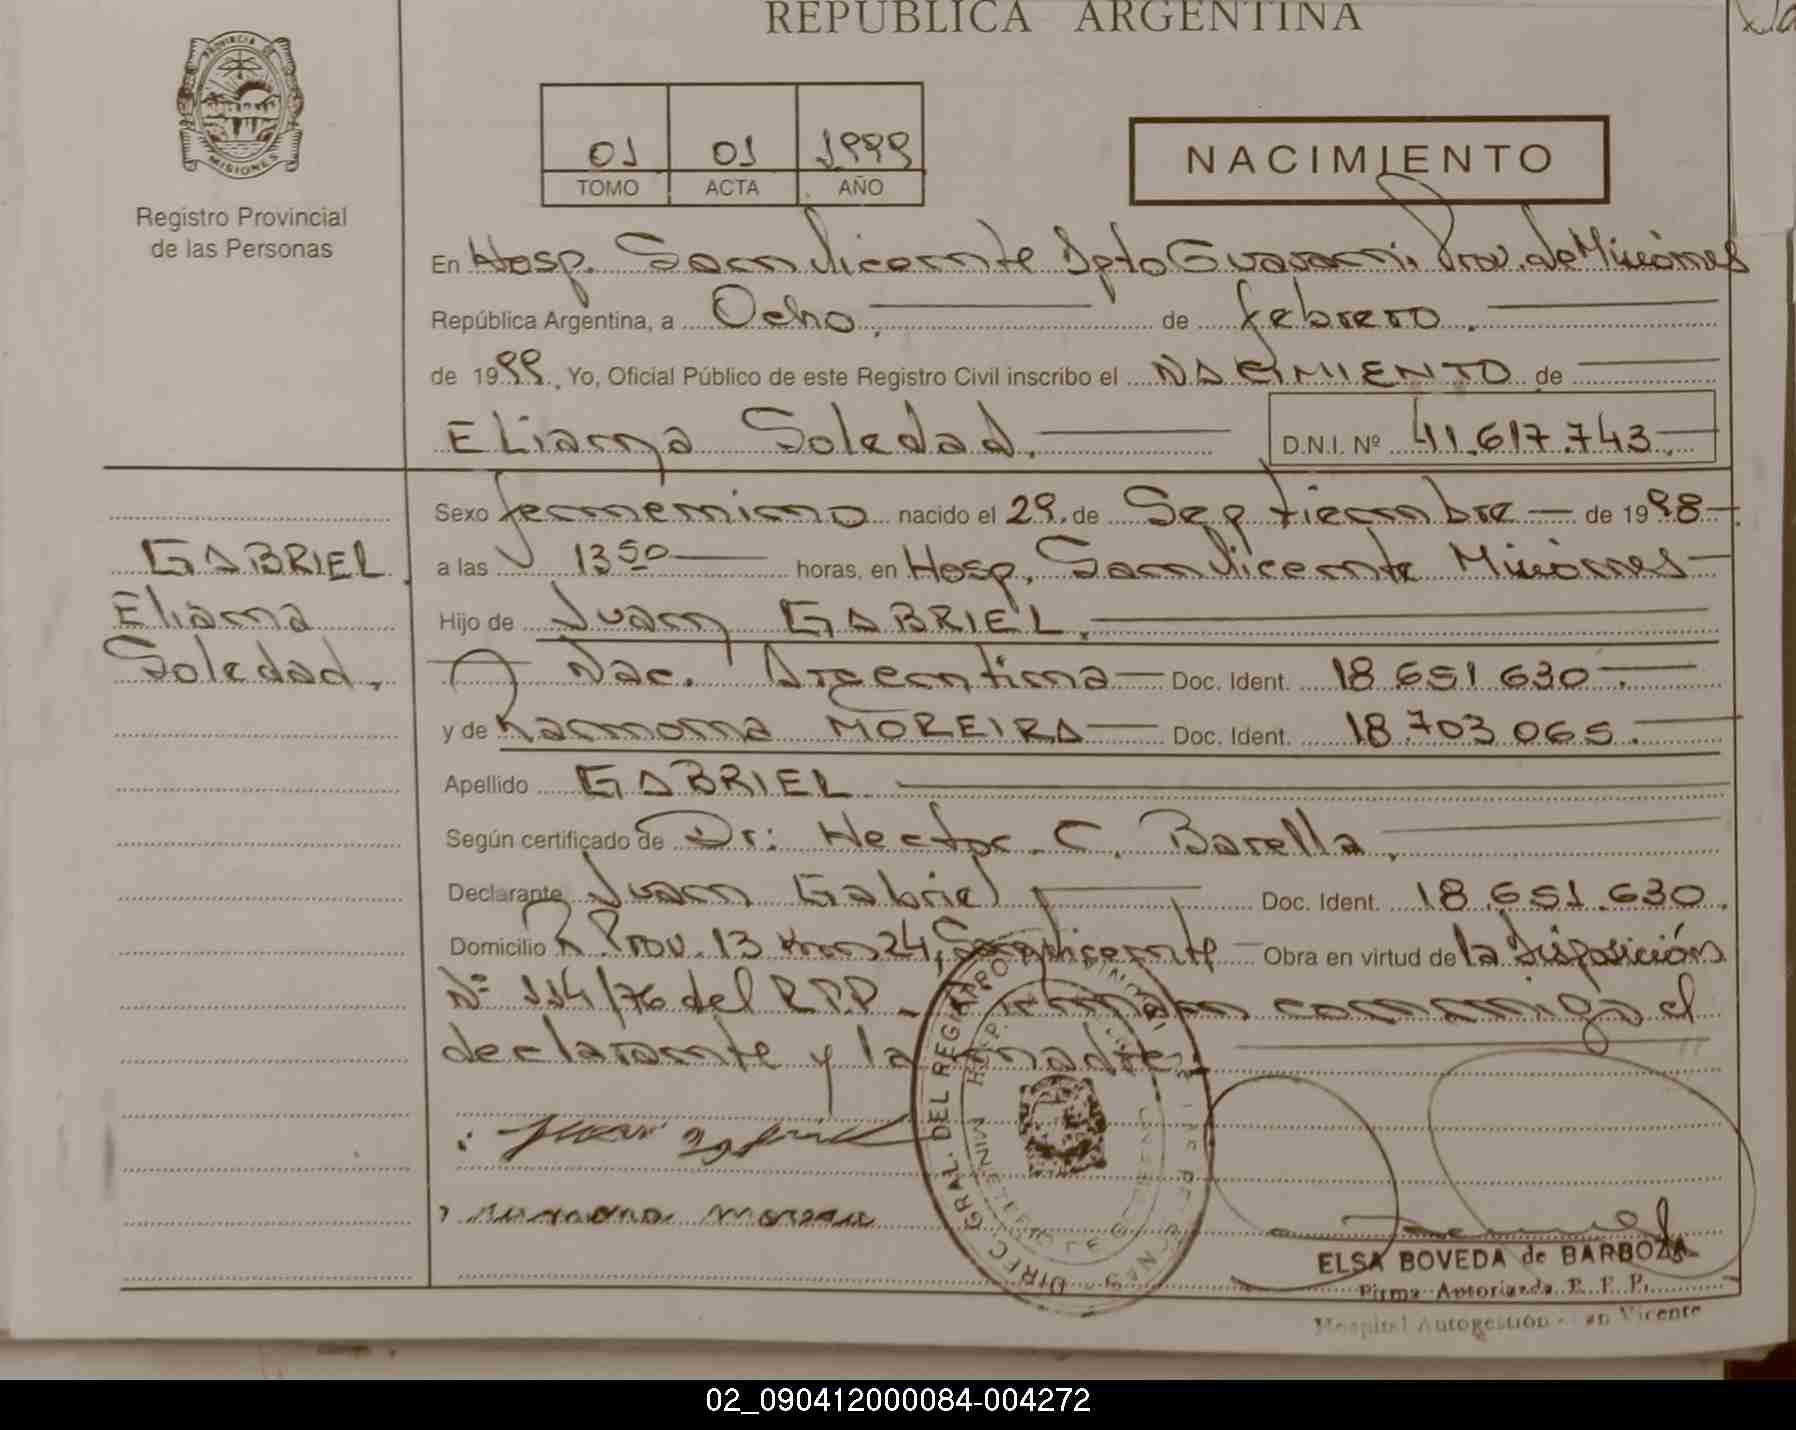 REPUBLICA ARGENTINA
PROVINCIA DE MISIONES
Registro Provincial
de las Personas
01 01 1999
TOMO ACTA AÑO
NACIMIENTO
En Hosp. San Vicente Dpto Guarani. Prov. de Misiones
República Argentina, a Ocho. de febrero.
de 1999. Yo, Oficial Público de este Registro Civil inscribo el NACIMIENTO de
Eliana Soledad. D.N.I. Nº 41.617.743.
GABRIEL
Eliana
Soledad.
Sexo femenino nacido el 29. de Septiembre de 1998
a las 13 50 horas, en Hosp. San Vicente Misiones
Hijo de Juan GABRIEL.
Nac. Argentina Doc. Ident. 18 651 630.
y de Ramona MOREIRA Doc. Ident. 18.703 065.
Apellido GABRIEL
Según certificado de Dr: Hector. C. Barella.
Declarante Juan Gabriel Doc. Ident. 18 651.630.
Domicilio R. Prov. 13 Km 24, San Vicente Obra en virtud de la disposición
Nº 114/76 del R.P.P. Firman conmigo el
declarante y la madre.
DIREC. GRAL. DEL REGISTRO
ELSA BOVEDA de BARBOZA
Firma Autorizada R. P. P.
Hospital Autogestión San Vicente
02_090412000084-004272